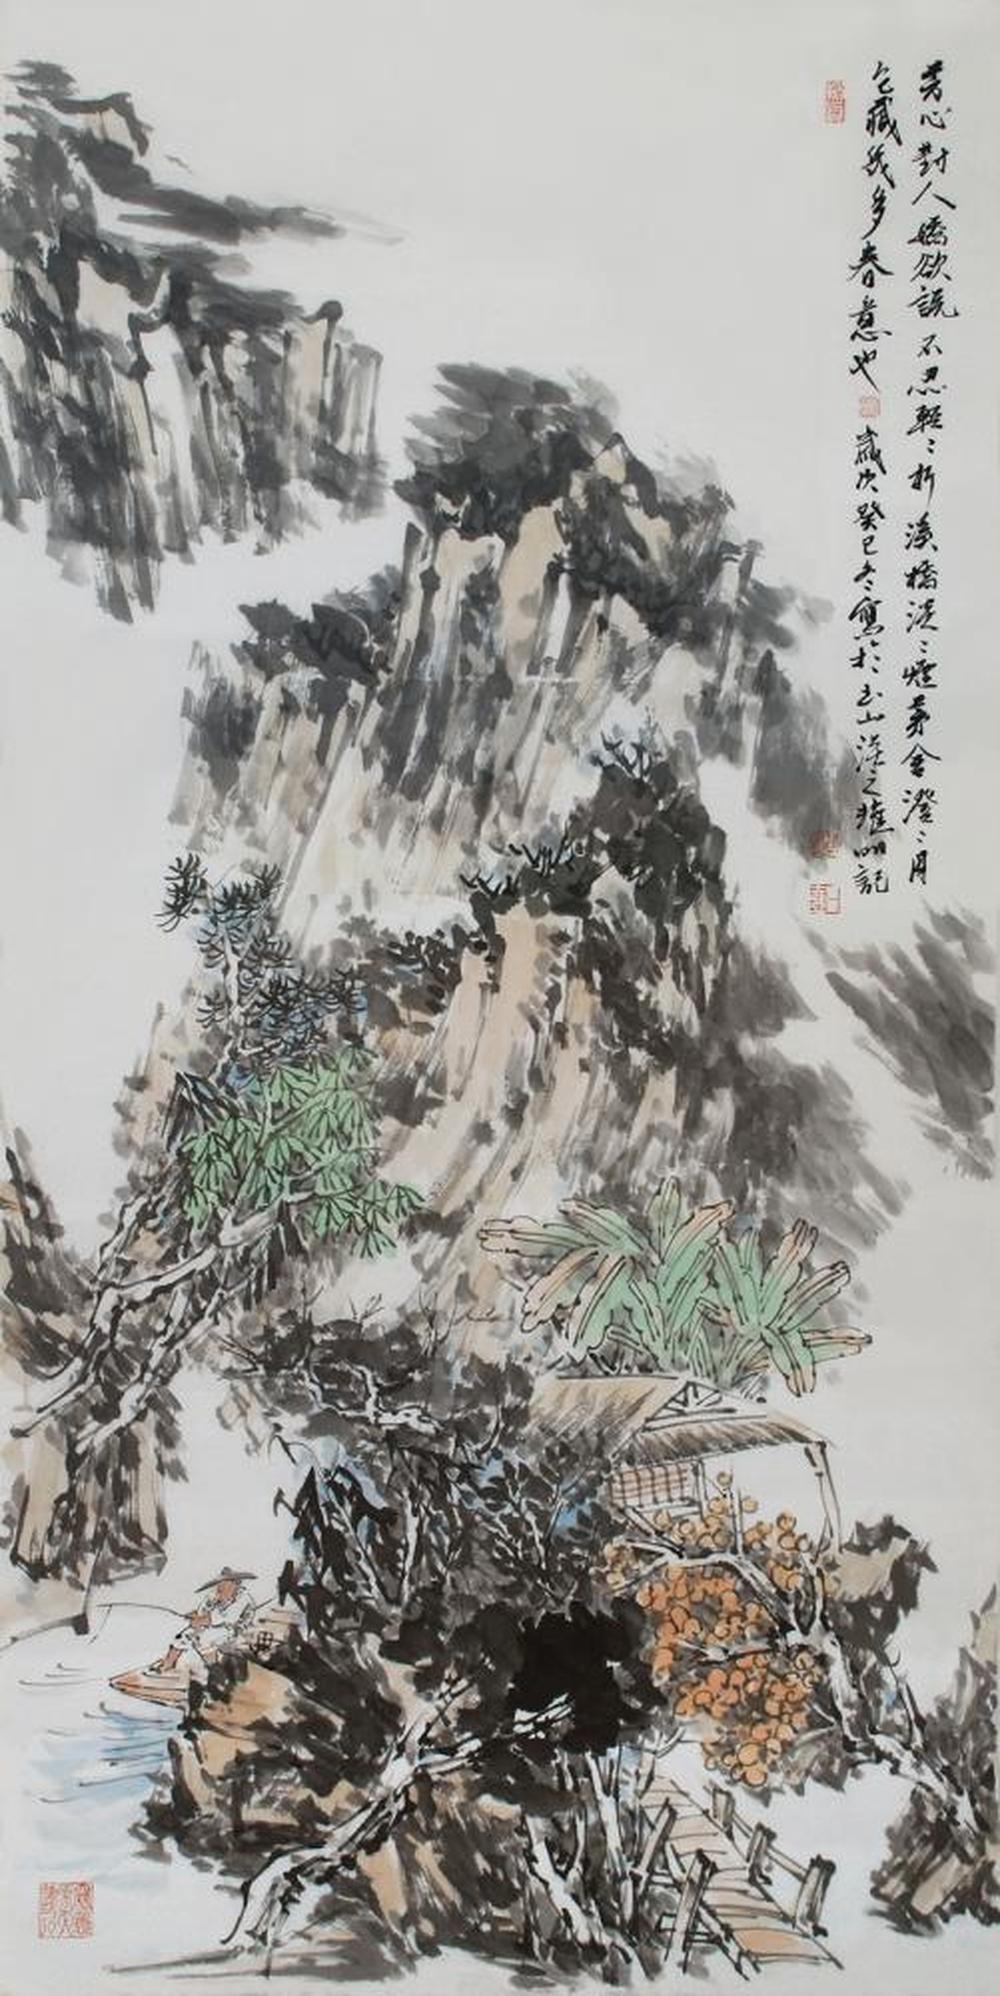 芳心對人嬌欲說不忍輕〻折溪橋淡〻煙茅舍澄〻月
包藏幾多春意也 歲次癸巳冬寫於玉山 之 明記